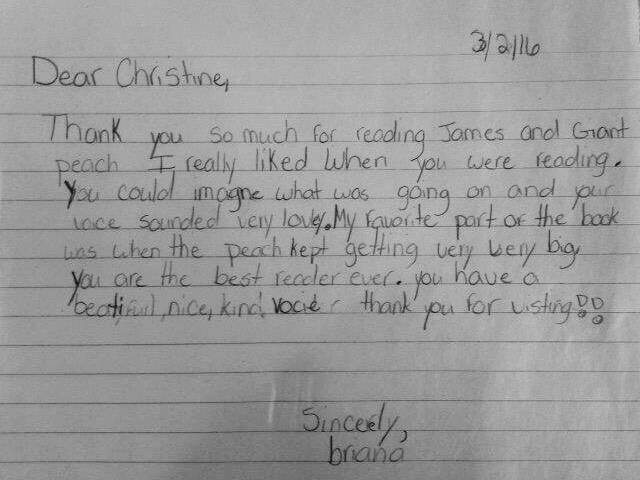 3/2/16
Dear Christine,
Thank you so much for reading James and Giant
peach I really liked when you were reading.
You could imagne what was going on and your
voice sounded very lovley. My favorite part of the book
was when the peach kept getting very very big
You are the best reader ever. you have a
beatiful, nice, kind, vocie thank you for visting!!
Sincerely,
briana